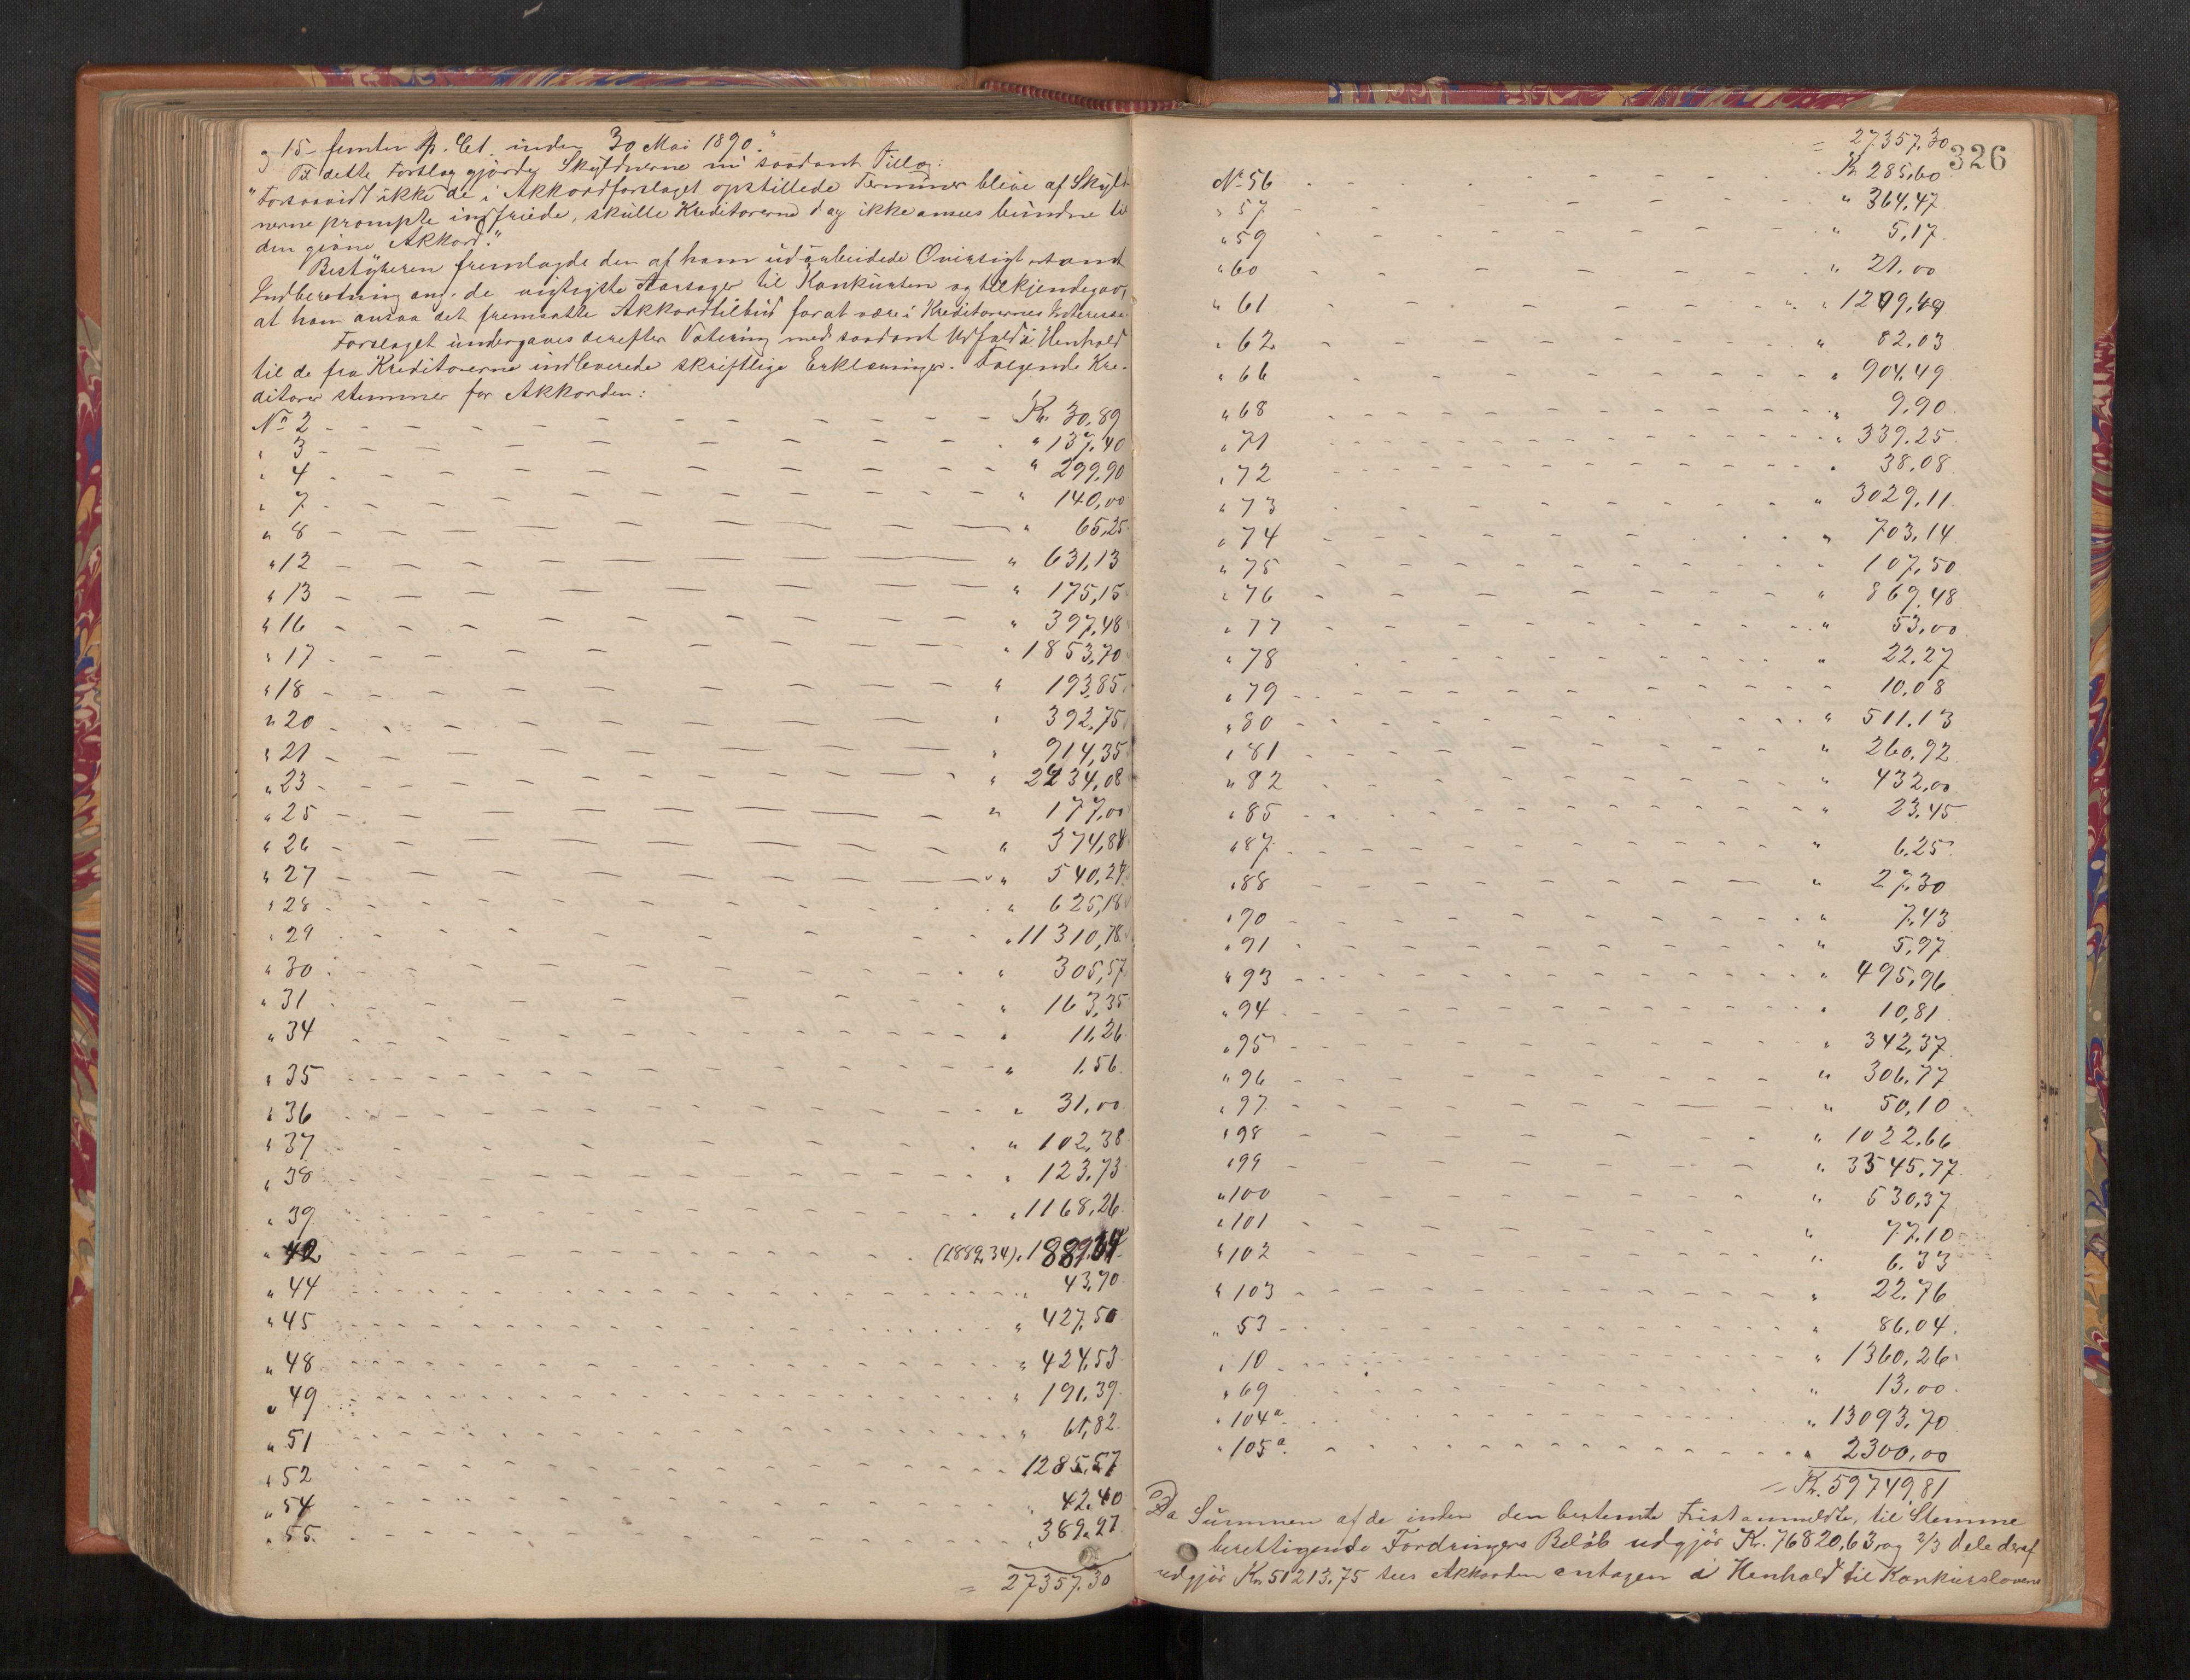 g 15 – femten p. Ct. inden 30 Mai 1890."
Til dette Forslag gjorde Skyldnerne nu saadant Tillæg:
"Forsaavidt ikke de i Akkordforslaget opstillede Terminer blive af Skyld-
nerne prompte indfriede, skulle Kreditorerne dog ikke ansees bundne til
den givne Akkord."
Bestyreren fremlagde den af ham udarbeidede Oversigt samt
Indberetning ang. de vigtigste Aarsager til Konkursen og tilkjendegav,
at ham ansaa det fremsatte Akkordtilbud for at være i Kreditorernes Interesse.
Forslaget undergaves derefter Votering med saadant Udfald i Henhold
til de fra Kreditorerne indleverede skriftlige Erklæringer. Følgende Kre-
ditorer stemmer for Akkorden:
No 2 - - - Kr. 30,89
" 3 - - - " 137,40
" 4 - - - " 299,90
" 7 - - - " 140,00
" 8 - - - " 65,25
" 12 - - - " 631,13
" 13 - - - " 175,15
" 16 - - - " 397,48
" 17 - - - " 1853,70
" 18 - - - " 193,85
" 20 - - - " 392,75
" 21 - - - " 914,35
" 23 - - - " 2234,08
" 25 - - - " 177,00
" 26 - - - " 374,84
" 27 - - - " 540,27
" 28 - - - " 625,18
" 29 - - - " 11310,78
" 30 - - - " 305,57
" 31 - - - " 163,35
" 34 - - - " 11,26
" 35 - - - " 1.56
" 36 - - - " 31,00
" 37 - - - " 102,38
" 38 - - - " 123,73
" 39 - - - " 1168,26
" 42 - - - (1889,34) " 1889,34
" 44 - - - " 43,70
" 45 - - - " 427,50
" 48 - - - " 424,53
" 49 - - - " 191,39
" 51 - - - " 61,82
" 52 - - - 1285,57
" 54 - - - " 42,40
" 55 - - - " 389,27
= 27357,30
326
= 27357,30
No 56 - - - Kr 285,60
" 57 - - - " 364,47
" 59 - - - " 5,17
" 60 - - - " 21.00
" 61 - - - " 1209,49
" 62 - - - " 82,03
" 66 - - - " 904,49
" 68 - - - " 9,90
" 71 - - - " 339,25
" 72 - - - " 38,08
" 73 - - - " 3029,11
" 74 - - - " 703,14
" 75 - - - " 107,50
" 76 - - - " 869,48
" 77 - - - " 53,00
" 78 - - - " 22,27
" 79 - - - " 10,08
" 80 - - - " 511,13
" 81 - - - " 260,92
" 82 - - - " 432,00
" 85 - - - " 23,45
" 87 - - - " 6,25
" 88 - - - " 27,30
" 90 - - - " 7,43
" 91 - - - " 5,97
" 93 - - - " 495,96
" 94 - - - " 10,81
" 95 - - - " 342,37
" 96 - - - " 306,77
" 97 - - - " 50,10
" 98 - - - " 1022,66
" 99 - - - " 3545,77
" 100 - - - " 530,37
" 101 - - - " 77,10
" 102 - - - " 6.33
" 103 - - - " 22,76
" 53 - - - " 86,04
" 10 - - - " 1360,26
" 69 - - - " 13,00
" 104a - - - " 13093,70
" 105a - - - " 2300,00
= Kr. 59749,81
Da Summen af de inden den bestemte Frist anmeldte, til Stemme
berettigende Fordringers Beløb udgjør Kr. 76820,63 og 2/3 Dele deraf
udgjør Kr 51213,75 sees Akkorden antagen i Henhold til Konkurslovens